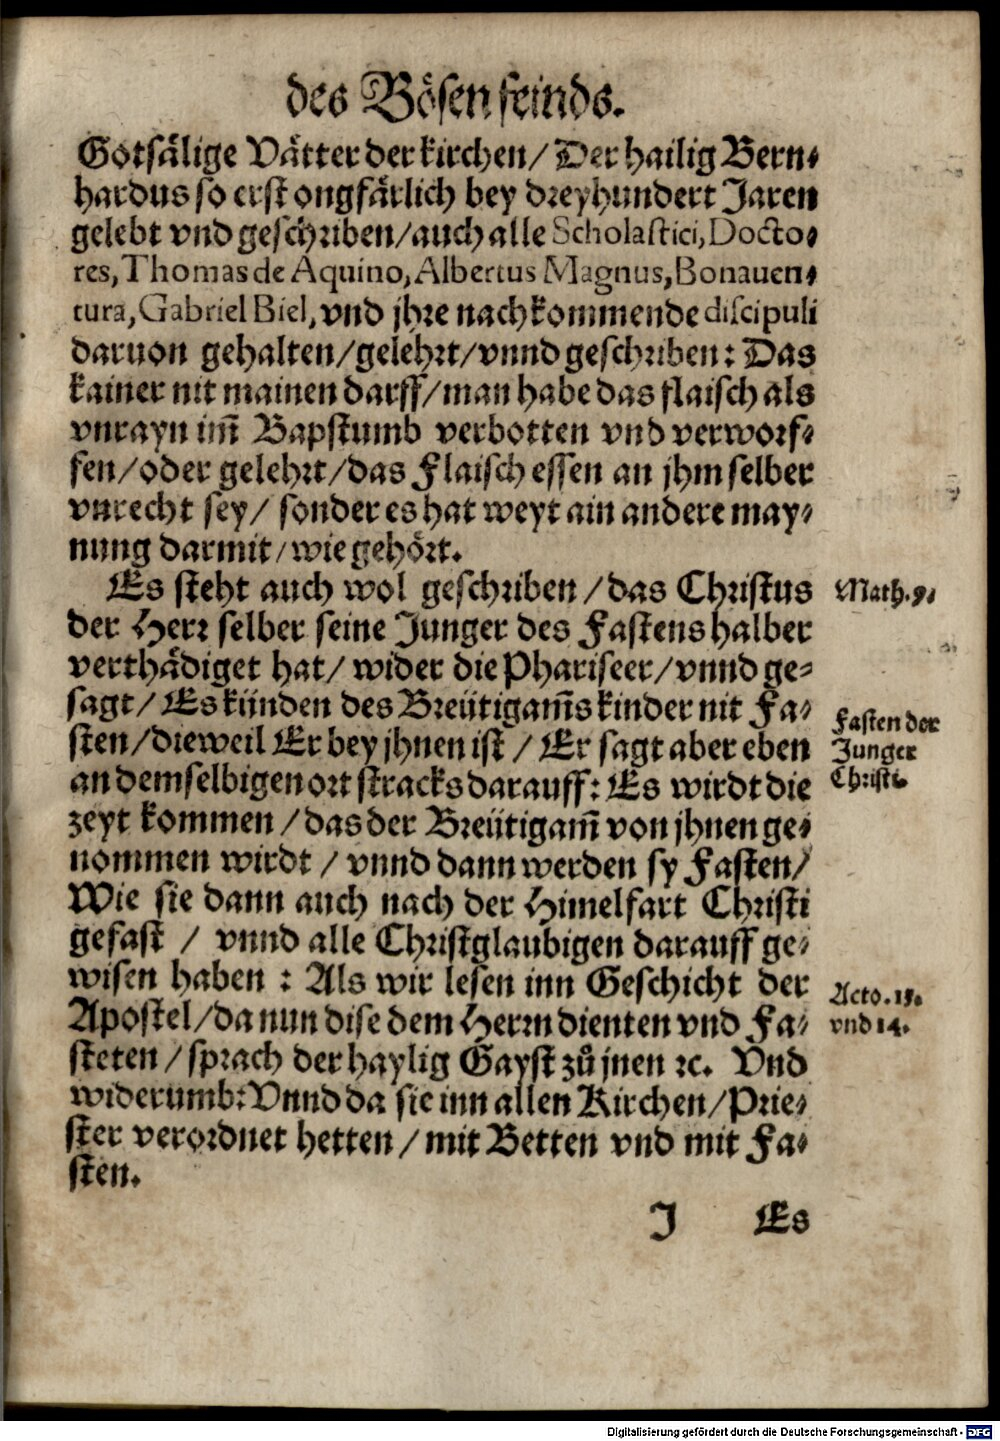 des Bösen feinds.
Gotsälige Vätter der kirchen/ Der hailig Bern-
hardus so erst ongfärlich bey dreyhundert Jaren
gelebt vnd geschriben/auch alle Scholastici, Docto-
res, Thomas de Aquino, Albertus Magnus, Bonauen-
tura, Gabriel Biel, vnd jhre nachkommende discipuli
daruon gehalten/gelehrt/vnnd geschriben: Das
kainer nit mainen darff/man habe das flaisch als
vnrayn im̃ Bapstumb verbotten vnd verworf-
fen/oder gelehrt/das Flaisch essen an jhm selber
vnrecht sey/ sonder es hat weyt ain andere may-
nung darmit/wie gehört.
Es steht auch wol geschriben/das Christus
Math. 9.
der Herr selber seine Junger des Fastens halber
verthädiget hat/ wider die Phariseer/vnnd ge-
sagt/ Es künden des Breütigam̃s kinder nit Fa-
sten/dieweil Er bey jhnen ist / Er sagt aber eben
Fasten der
Junger
Christi.
an demselbigen ort stracks darauff: Es wirdt die
zeyt kommen/das der Breütigam̃ von jhnen ge-
nommen wirdt / vnnd dann werden sy Fasten/
Wie sie dann auch nach der Himelfart Christi
gefast / vnnd alle Christglaubigen darauff ge-
wisen haben : Als wir lesen inn Geschicht der
Acto. 13.
vnd 14.
Apostel/da nun dise dem Herrn dienten vnd Fa-
steten/sprach der haylig Gayst zů jnen ꝛc. Vnd
widerumb: Vnnd da sie inn allen Kirchen/Prie-
ster verordnet hetten/mit Betten vnd mit Fa-
sten.
J Es
Digitalisierung gefördert durch die Deutsche Forschungsgemeinschaft - DFG